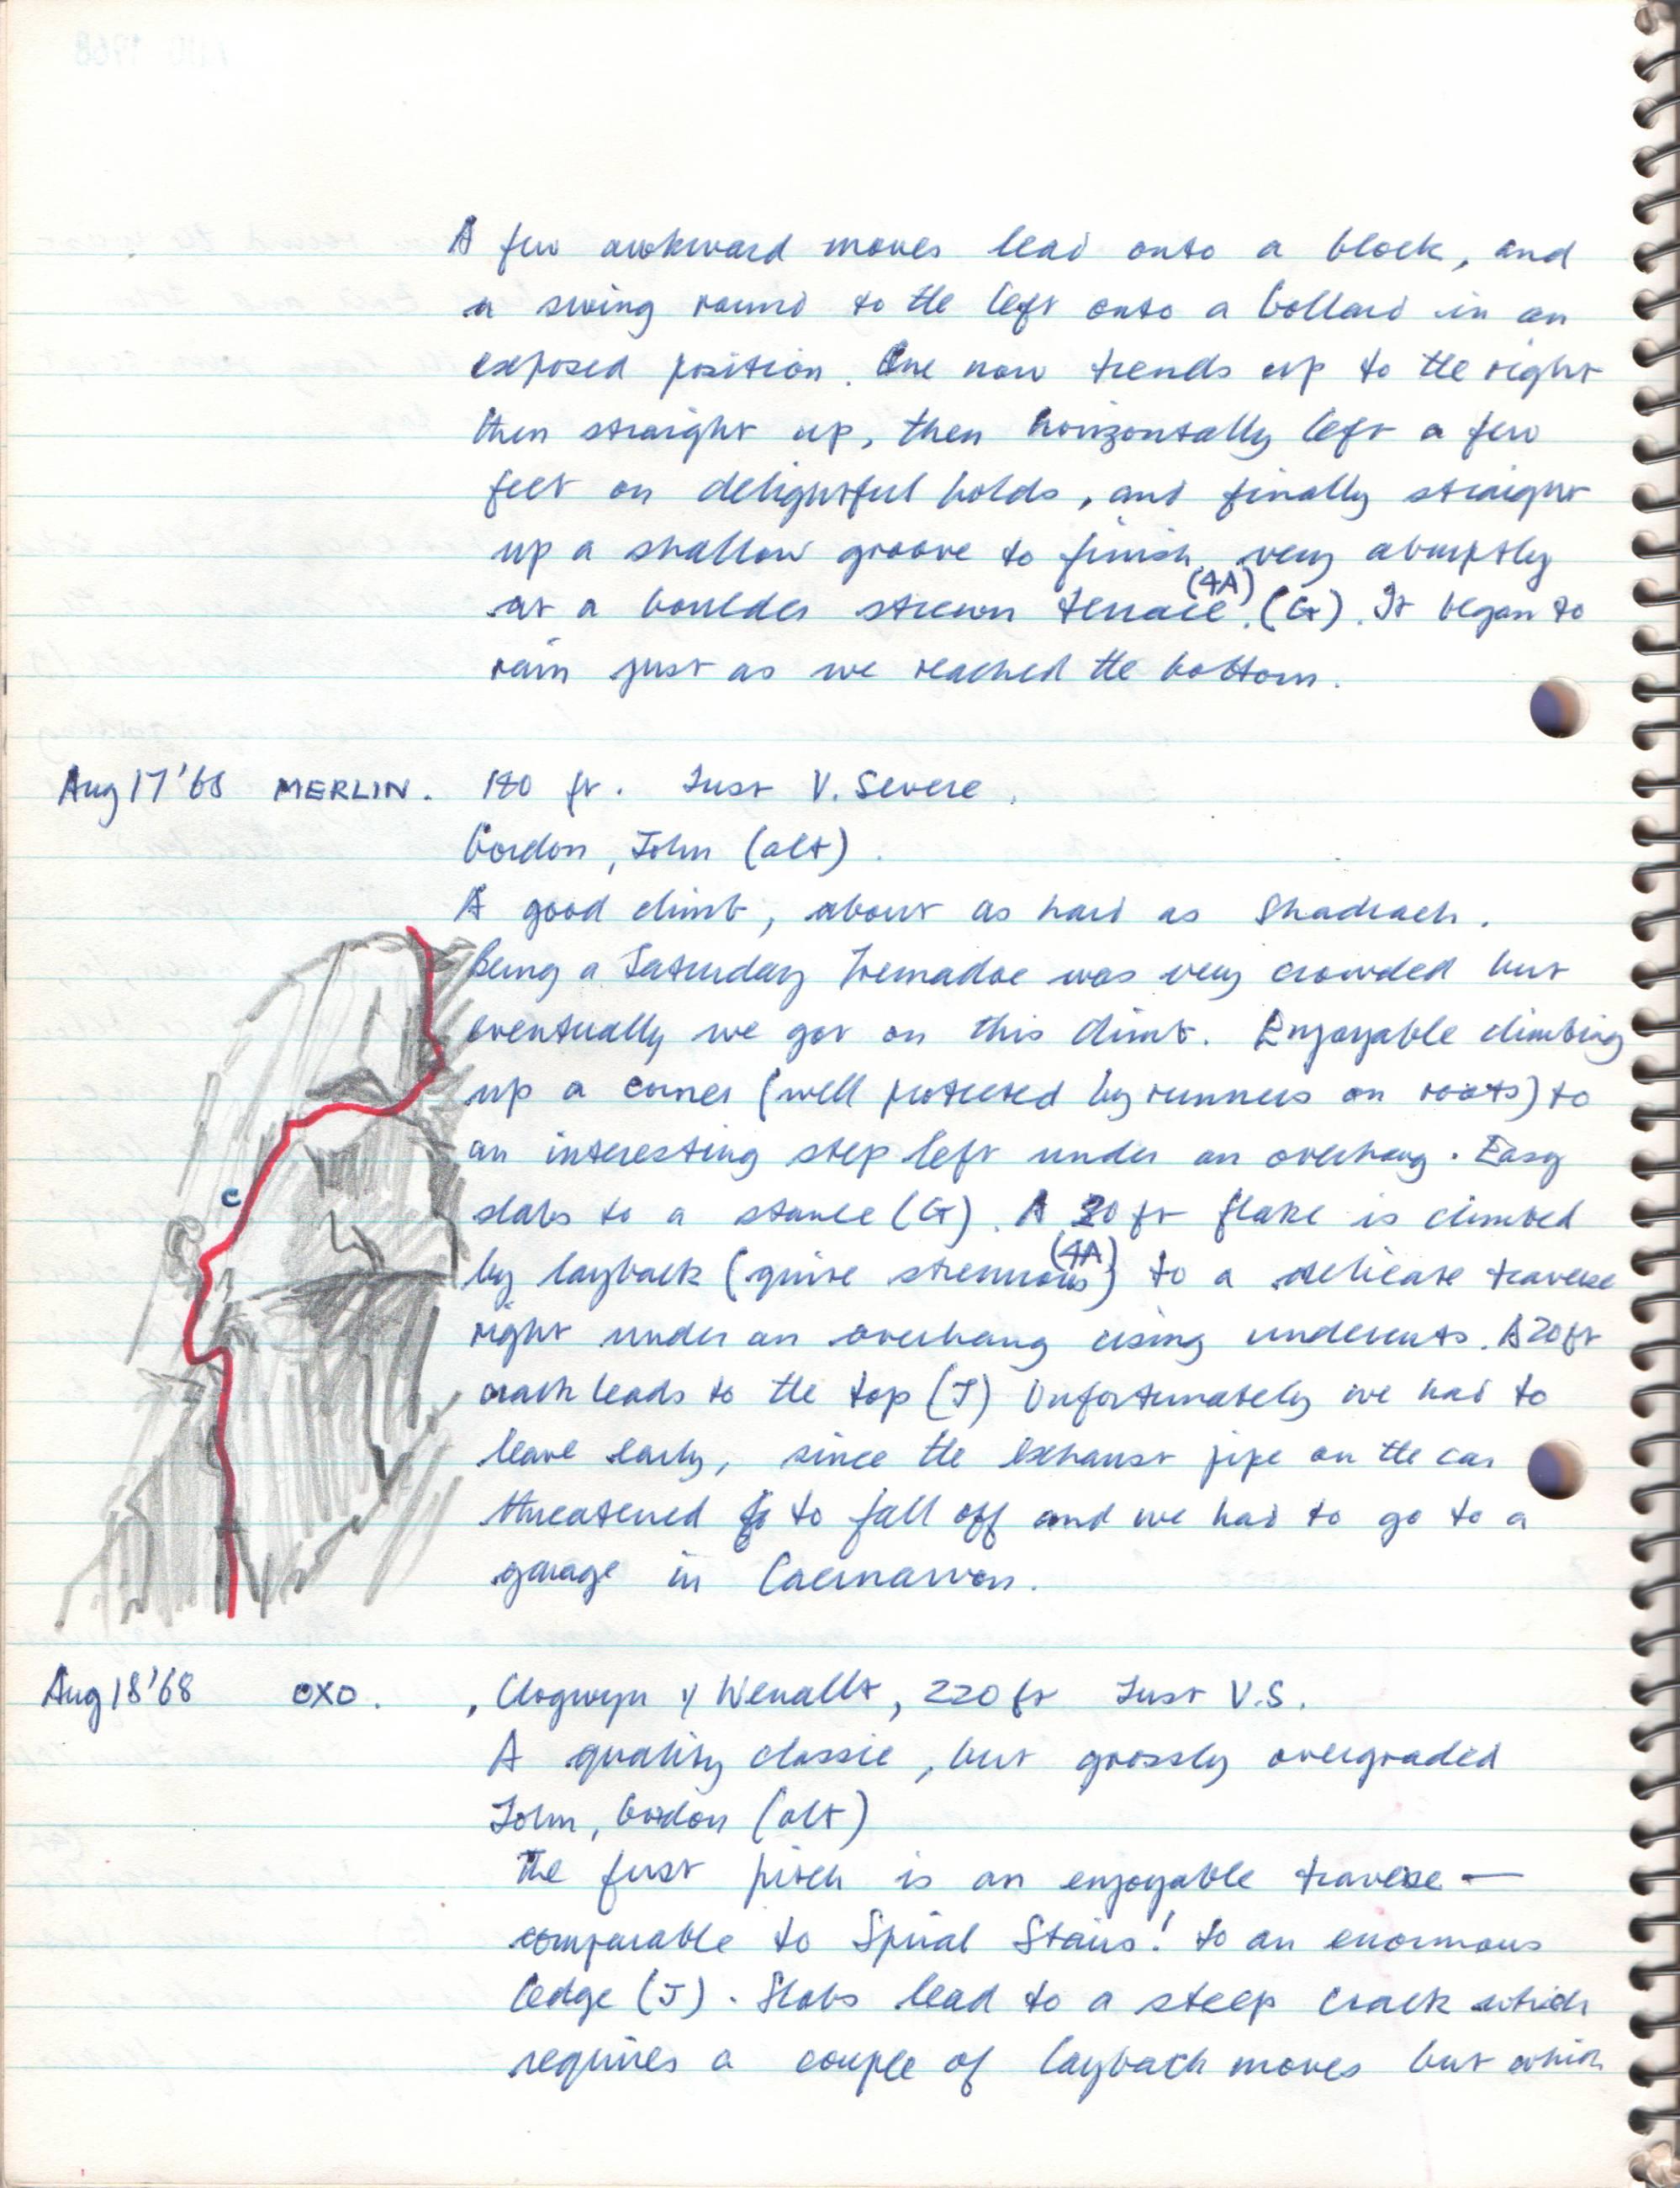 A few awkward moves lead onto a block, and
a swing round to the left onto a bollard in an
exposed position. One now trends up to the right
then straight up, then horizontally left a few
feet on delightful holds, and finally straight
up a shallow groove to finish very abruptly
(4A)
at a boulder strewn terrace. (G). It began to
rain just as we reached the bottom.
Aug 17 '68 MERLIN. 180 ft. Just V. Severe.
Gordon, John (alt).
A good climb, about as hard as Shadrach.
Being a Saturday Tremadoc was very crowded but
eventually we got on this climb. Enjoyable climbing
up a corner (well protected by runners on roots) to
an interesting step left under an overhang. Easy
c
slabs to a stance (G). A 30 ft flake is climbed
(4A)
by layback (quite strenuous) to a delicate traverse
right under an overhang using undercuts. A 20 ft
crack leads to the top (J) Unfortunately we had to
leave early, since the exhaust pipe on the car
threatened to to fall off and we had to go to a
garage in Caernarvon.
Aug 18 '68 OXO. , Clogwyn y Wenallt, 220 ft Just V.S.
A quality classic, but grossly overgraded
John, Gordon (alt)
The first pitch is an enjoyable traverse —
comparable to Spiral Stairs! to an enormous
ledge (J). Slabs lead to a steep crack which
requires a couple of layback moves but which